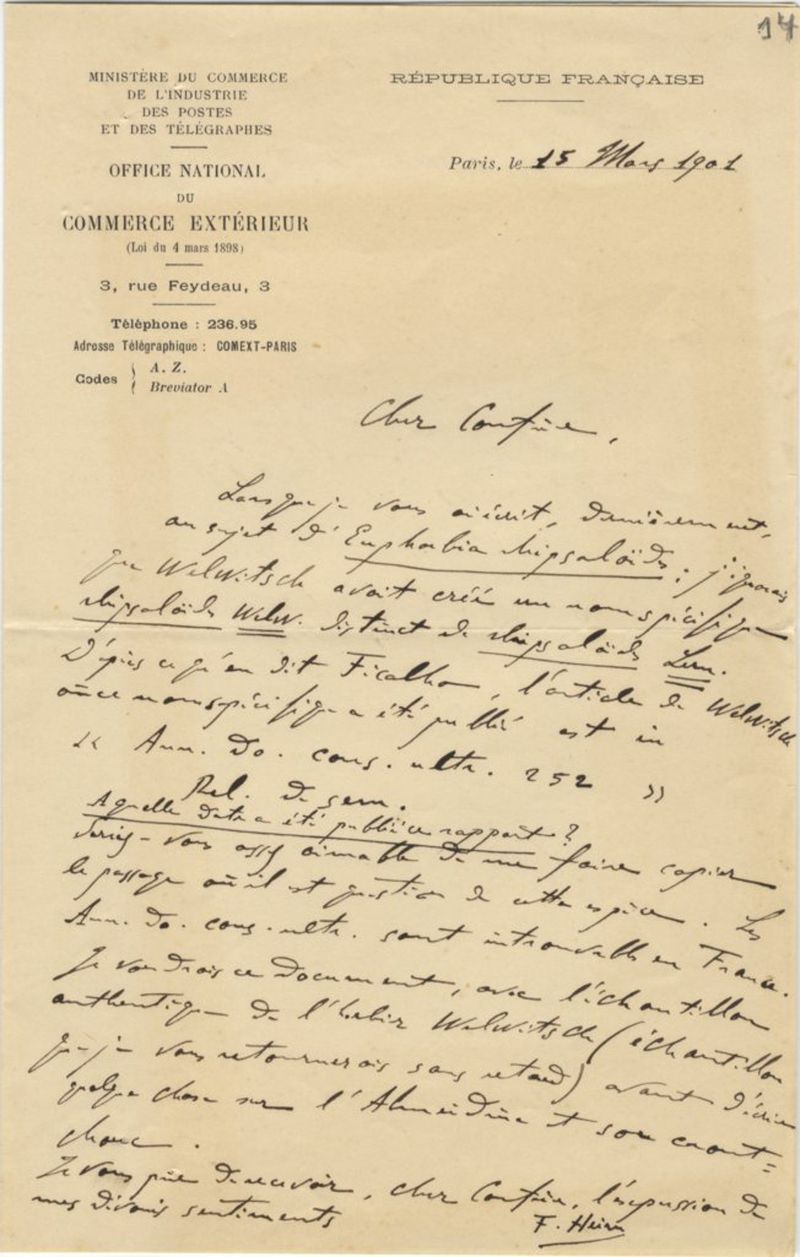 14
MINISTÈRE DU COMMERCE
DE L'INDUSTRIE
DES POSTES
ET DES TÉLÉGRAPHES
OFFICE NATIONAL
DU
COMMERCE EXTÉRIEUR
(Loi du 4 mars 1898)
3, rue Feydeau, 3
Téléphone : 236.95
Adresse Télégraphique : COMEXT-PARIS
Codes { A. Z.
Breviator A
RÉPUBLIQUE FRANÇAISE
Paris, le 15 Mars 1901
Cher Confrère,
Lorsque je vous ai écrit, dernièrement,
au sujet d'Euphorbia rhipsaloïdes, j'ignorais
que Welwitsch avait créé un nom spécifique
rhipsaloïdes Welw. distinct de rhipsaloïdes Lem.
D'après ce qu'en dit Ficalho, l'article de Welwitsch
où ce nom spécifique a été publié est in
« Ann. do. cons. ultr. 252 »
Rel. de sem.
A quelle date a été publié ce rapport ?
Seriez-vous assez aimable de me faire copier
le passage où il est question de cette espèce. Les
Ann. do. cons. ultr. sont introuvables en France.
Je voudrais ce document, avec l'échantillon
authentique de l'herbier Welwitsch (échantillon
que je vous retournerais sans retard) avant d'écrire
quelque chose sur l'Almeidina et son caout=
chouc.
Je vous prie de recevoir, cher Confrère, l'expression de
mes dévoués sentiments
F. Heim